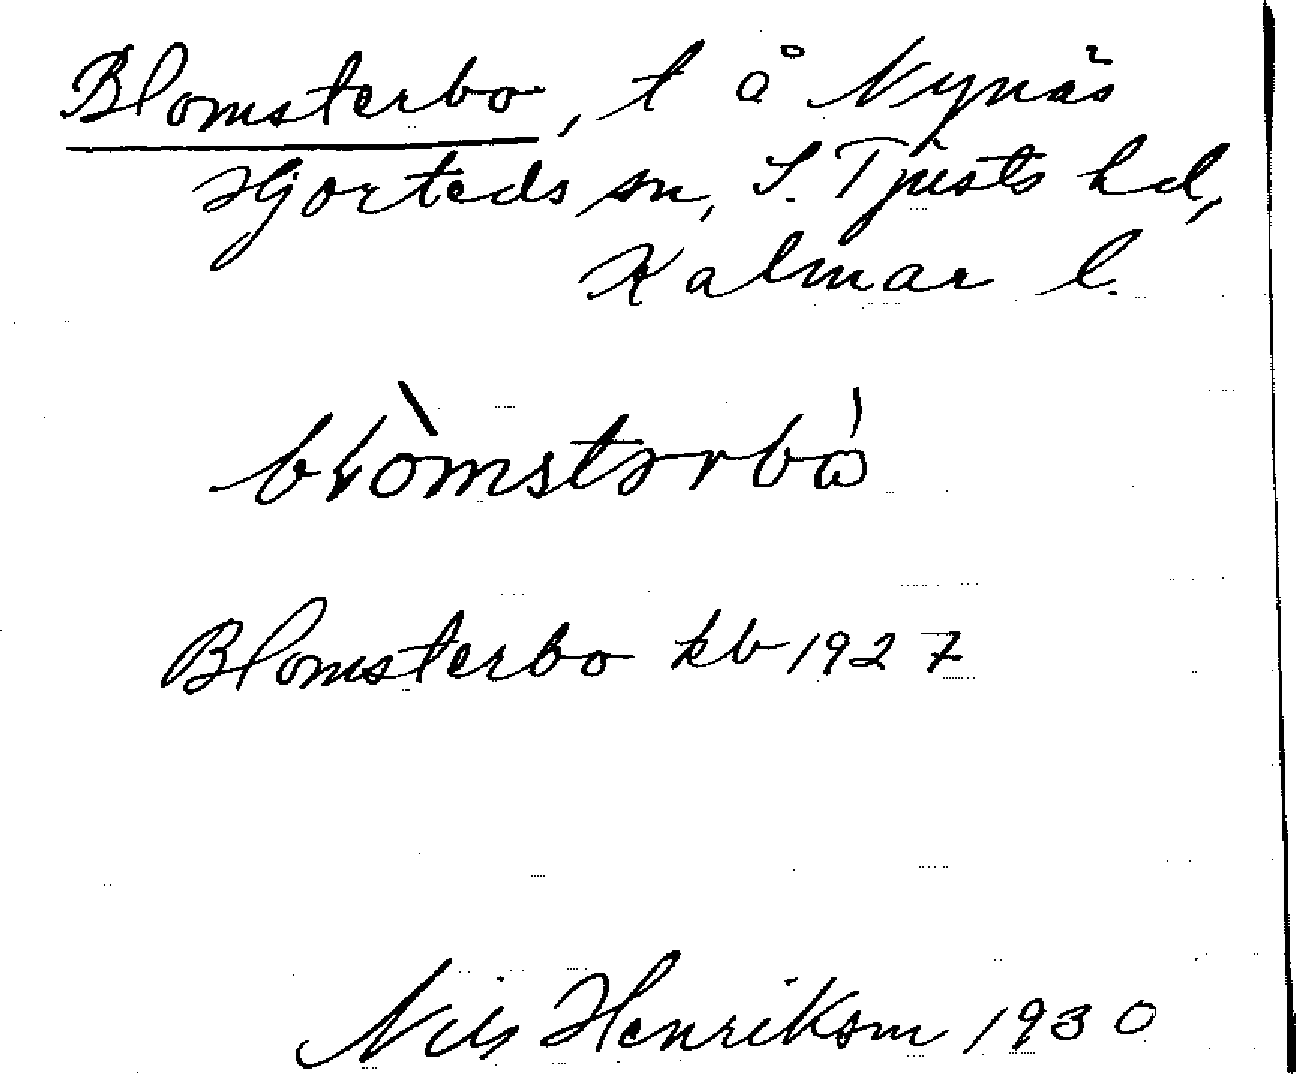 Blomsterbo, t å Nynäs
Hjorteds sn, S. Tjusts hd,
Kalmar l.
blòmstərbò
Blomsterbo kb 1927
Nils Henrikson 1930